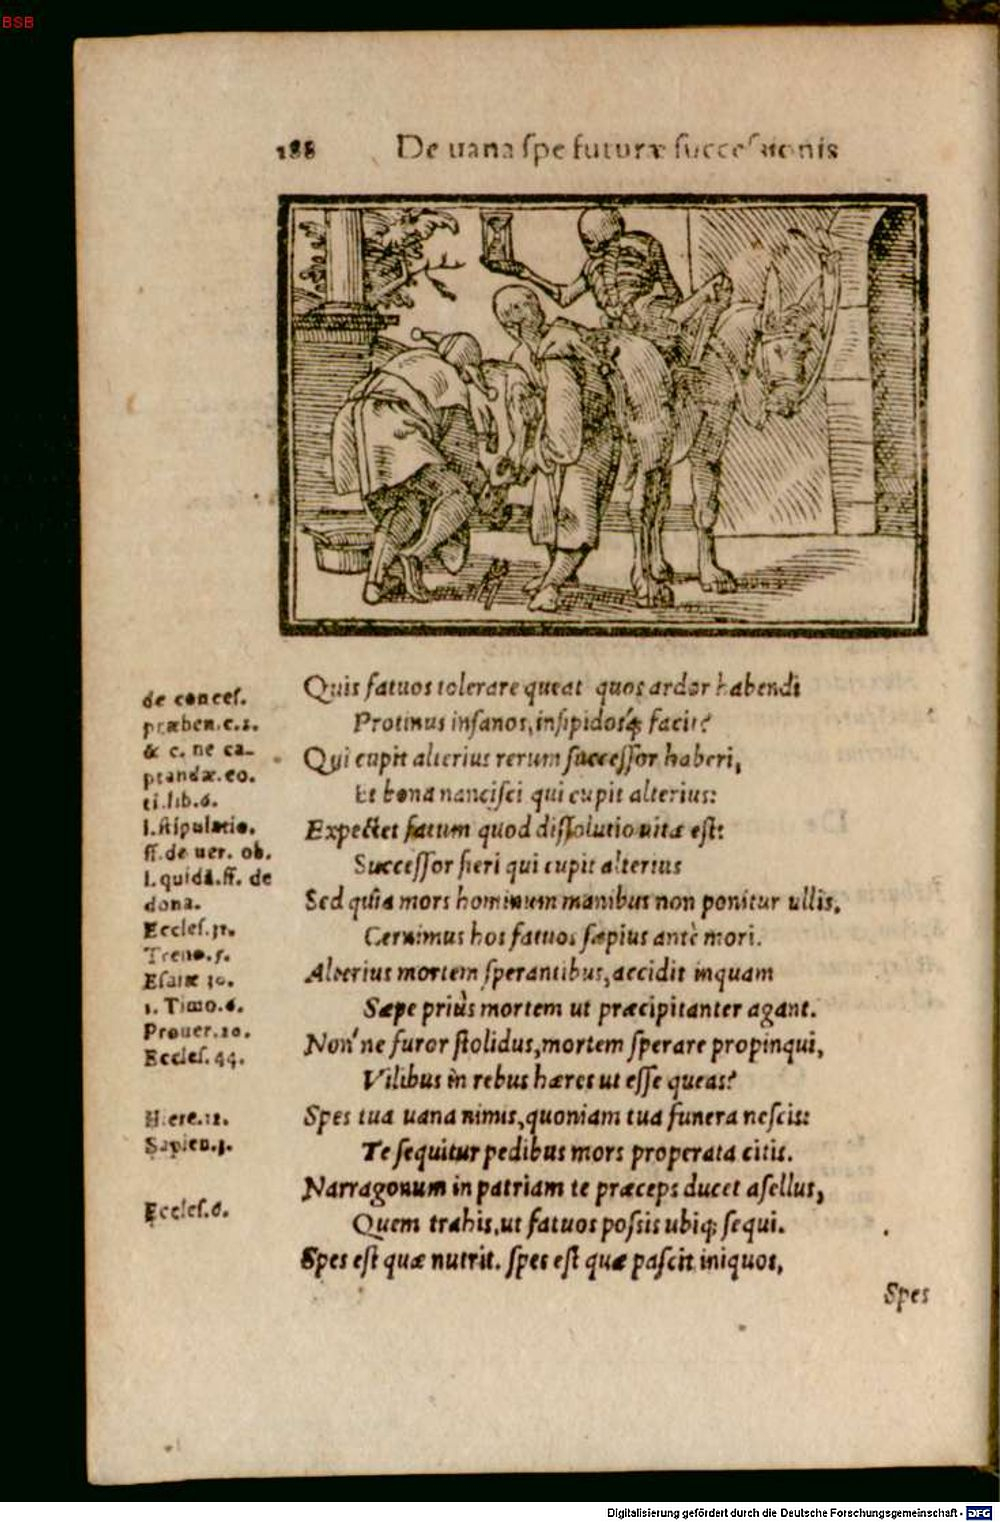 BSB
188 De uana ſpe futuræ ſucceſsionis
Quis fatuos tolerare queat quos ardor habendi
Protinus inſanos, inſipidosq́; facit?
Qui cupit alterius rerum ſucceſſor haberi,
Et bona nanciſci qui cupit alterius:
Expectet fatum quod diſſolutio uitæ eſt:
Succeſſor fieri qui cupit alterius
Sed quia mors hominum manibus non ponitur ullis,
Cernimus hos fatuos ſæpius antè mori.
Alterius mortem ſperantibus, accidit inquam
Sæpe priùs mortem ut præcipitanter agant.
Non' ne furor ſtolidus, mortem ſperare propinqui,
Vilibus in rebus hæres ut eſſe queas?
Spes tua uana nimis, quoniam tua funera neſcis:
Te ſequitur pedibus mors properata citis.
Narragonum in patriam te præceps ducet aſellus,
Quem trahis, ut fatuos poſsis ubiq; ſequi.
Spes eſt quæ nutrit. ſpes eſt quæ paſcit iniquos,
Spes
de conceſ.
præben. c. 2.
& c. ne ca-
ptandæ. eo.
ti. lib. 6.
l. ſtipulatio.
ff. de uer. ob.
l. quidā. ff. de
dona.
Eccleſ. 31.
Treno. 5.
Eſaiæ 30.
1. Timo. 6.
Prouer. 20.
Eccleſ. 44.
Hiere. 12.
Sapien. 3.
Eccleſ. 6.
Digitalisierung gefördert durch die Deutsche Forschungsgemeinschaft - DFG